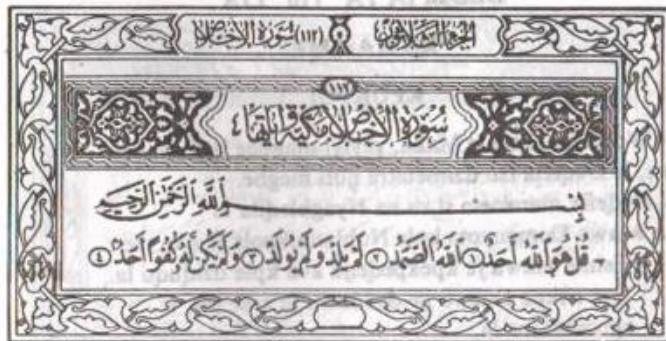 الجزء الثلاثون (١١٢) سورة الاخلاص
١١٢
سورة الاخلاص مكية وآياتها ٤
بِسْمِ اللَّهِ الرَّحْمَنِ الرَّحِيمِ
قُلْ هُوَ اللَّهُ أَحَدٌ ١ اللَّهُ الصَّمَدُ ٢ لَمْ يَلِدْ وَلَمْ يُولَدْ ٣ وَلَمْ يَكُنْ لَهُ كُفُوًا أَحَدٌ ٤